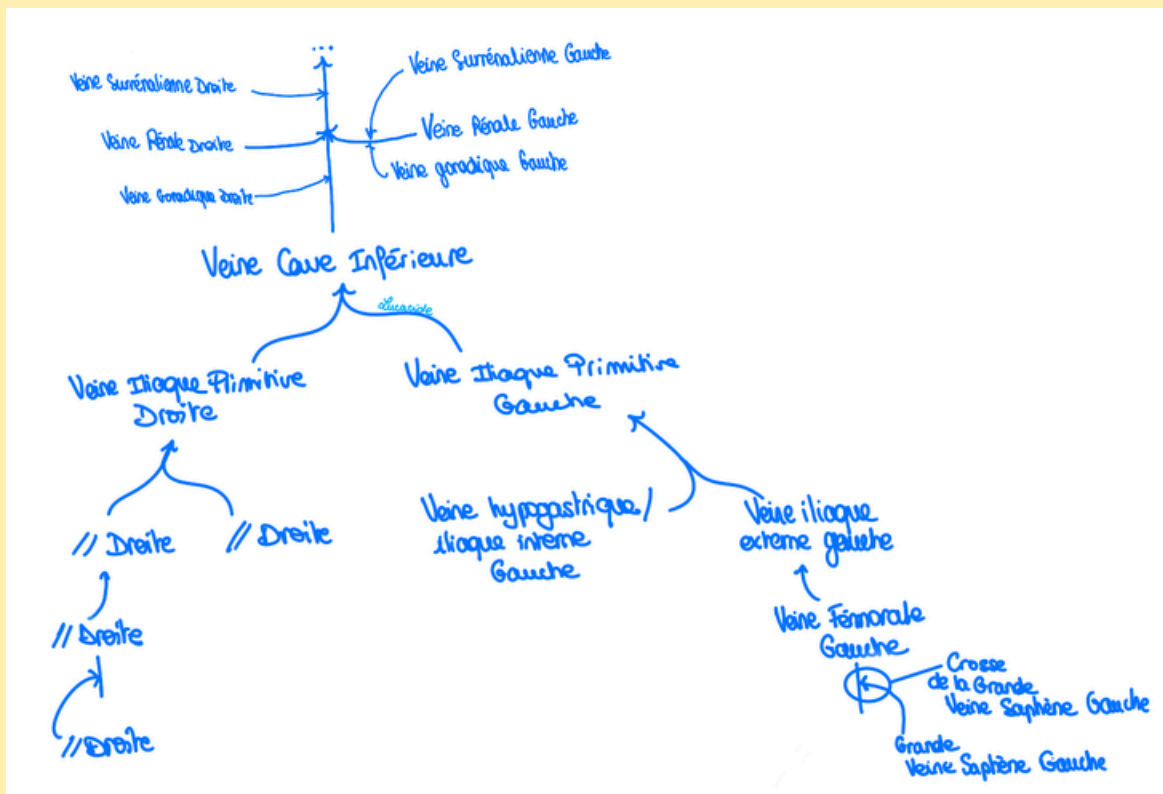 ...
Veine Surrénalienne Droite
Veine Surrénalienne Gauche
Veine Rénale Droite
Veine Rénale Gauche
Veine Gonadique Droite
Veine gonadique Gauche
Veine Cave Inférieure
Veine Iliaque Primitive
Droite
Veine Iliaque Primitive
Gauche
// Droite
// Droite
Veine hypogastrique/
iliaque interne
Gauche
Veine iliaque
externe gauche
// Droite
Veine Fémorale
Gauche
// Droite
Crosse
de la Grande
Veine Saphène Gauche
Grande
Veine Saphène Gauche